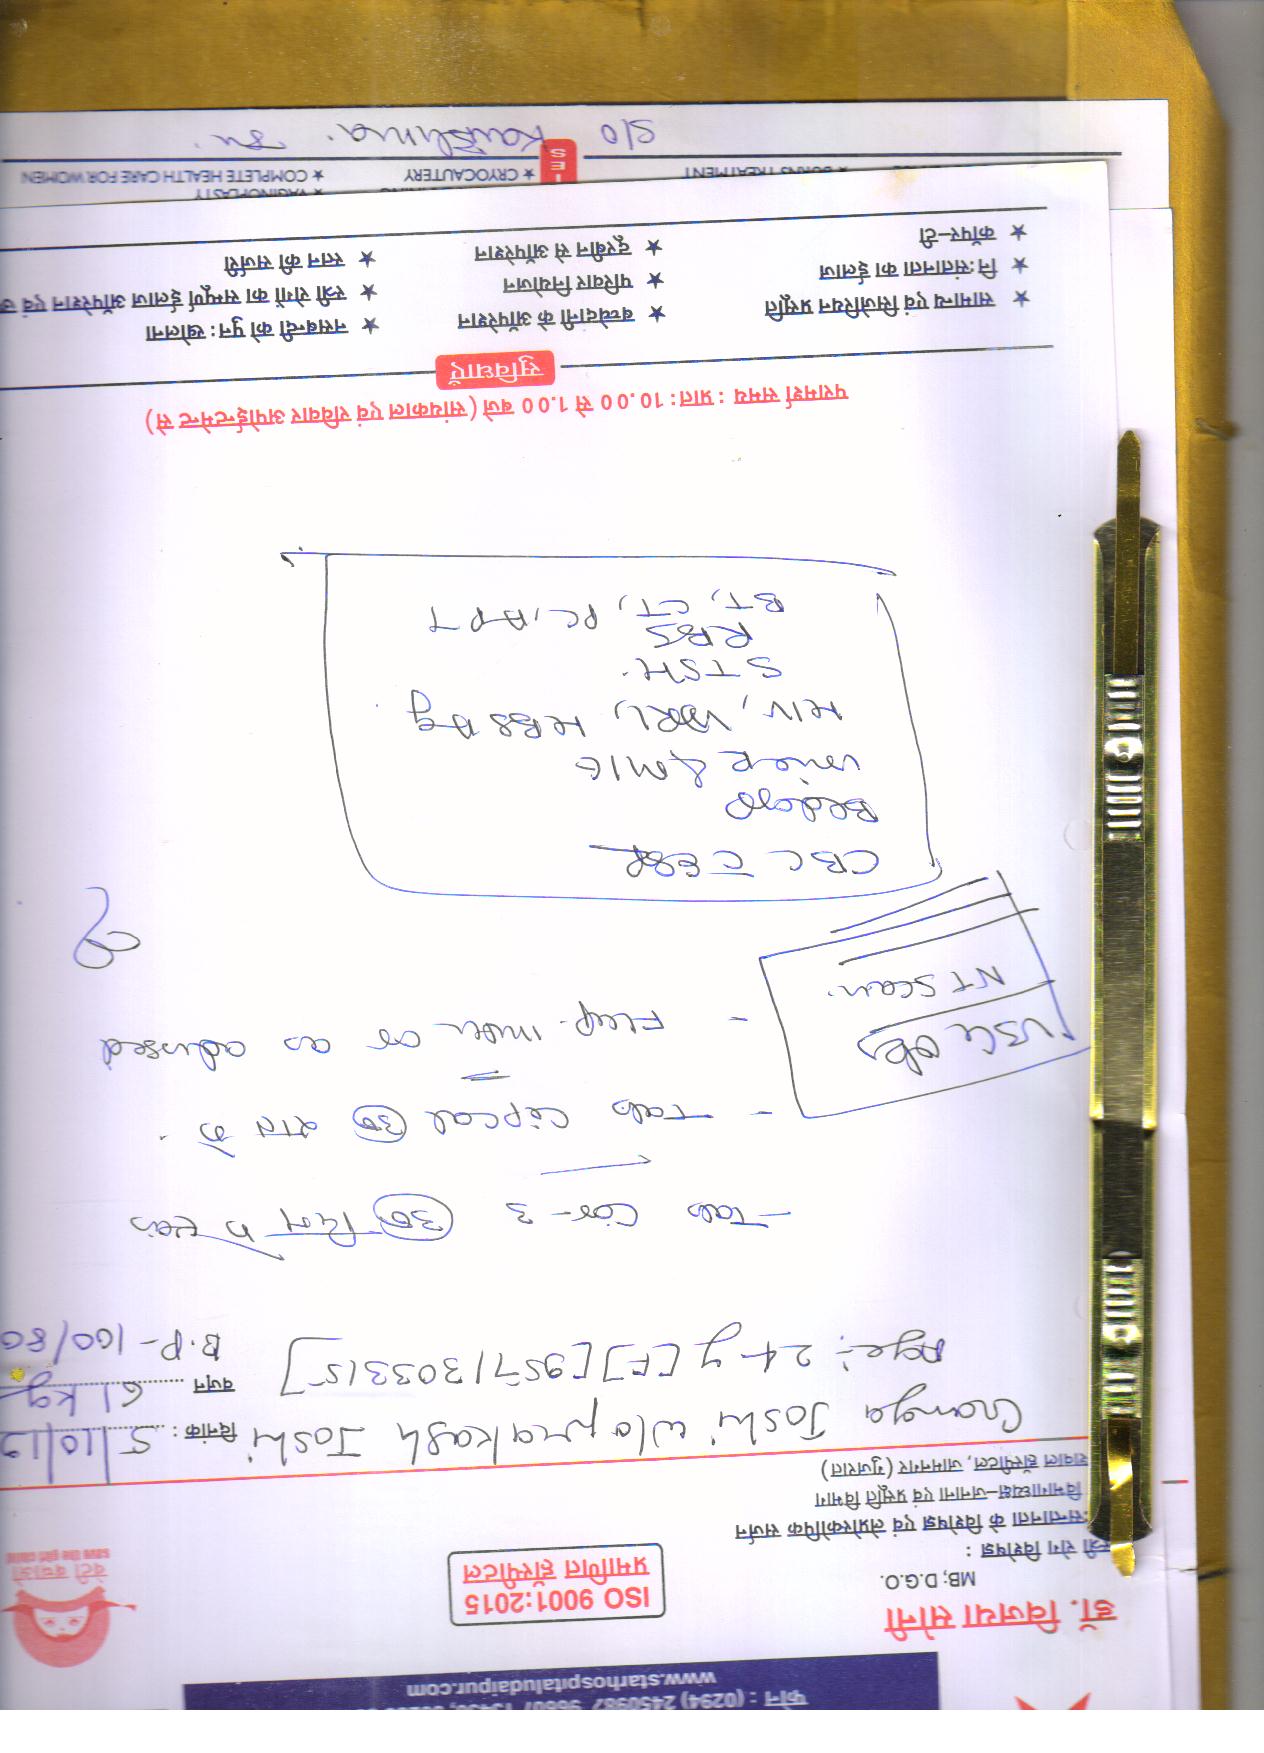 फोन : (0294) 2450987
www.starhospitaludaipur.com
डॉ. विजया सोनी
MB; D.G.O.
स्त्री रोग विशेषज्ञ :
सन्तानता के विशेषज्ञ एवं लेप्रोस्कोपिक सर्जन
विभागाध्यक्ष-जनाना एवं प्रसूति विभाग
हॉस्पीटल, जामनगर (गुजरात)
ISO 9001:2015
प्रमाणित हॉस्पीटल
बेटी बचाओ
save the girl child
Ganga Joshi w/o prakash Joshi
दिनांक : 5/10/19
Age :- 24 y [F] [9571303315]
वजन 61 kg
B.P- 100/80
- Tab Cor-3 (30) दिन में
- Tab Cipcal (30) रात में
- Flup. 1mth or as advised
USG obs
NT Scan.
CBC c ESR
Bldgp
Urine R/M/E
HIV, VDRL, HBSAg
S TSH.
RBS
BT, CT, PC, APT
परामर्श समय : प्रातः 10.00 से 1.00 बजे (सांयकाल एवं रविवार अपोईन्टमेन्ट से)
सुविधाएँ
★ सामान्य एवं सिजेरियन प्रसूति ★ बच्चेदानी के ऑपरेशन ★ नसबन्दी को पुनः खोलना
★ निःसंतानता का ईलाज ★ परिवार नियोजन ★ स्त्री रोगों का सम्पूर्ण ईलाज ऑपरेशन एवं
★ कॉपर-टी ★ दूरबीन से ऑपरेशन ★ स्तन की सर्जरी
★ VAGINOPLASTY
★ BURNS TREATMENT ★ CRYOCAUTERY ★ COMPLETE HEALTH CARE FOR WOMEN
S/O